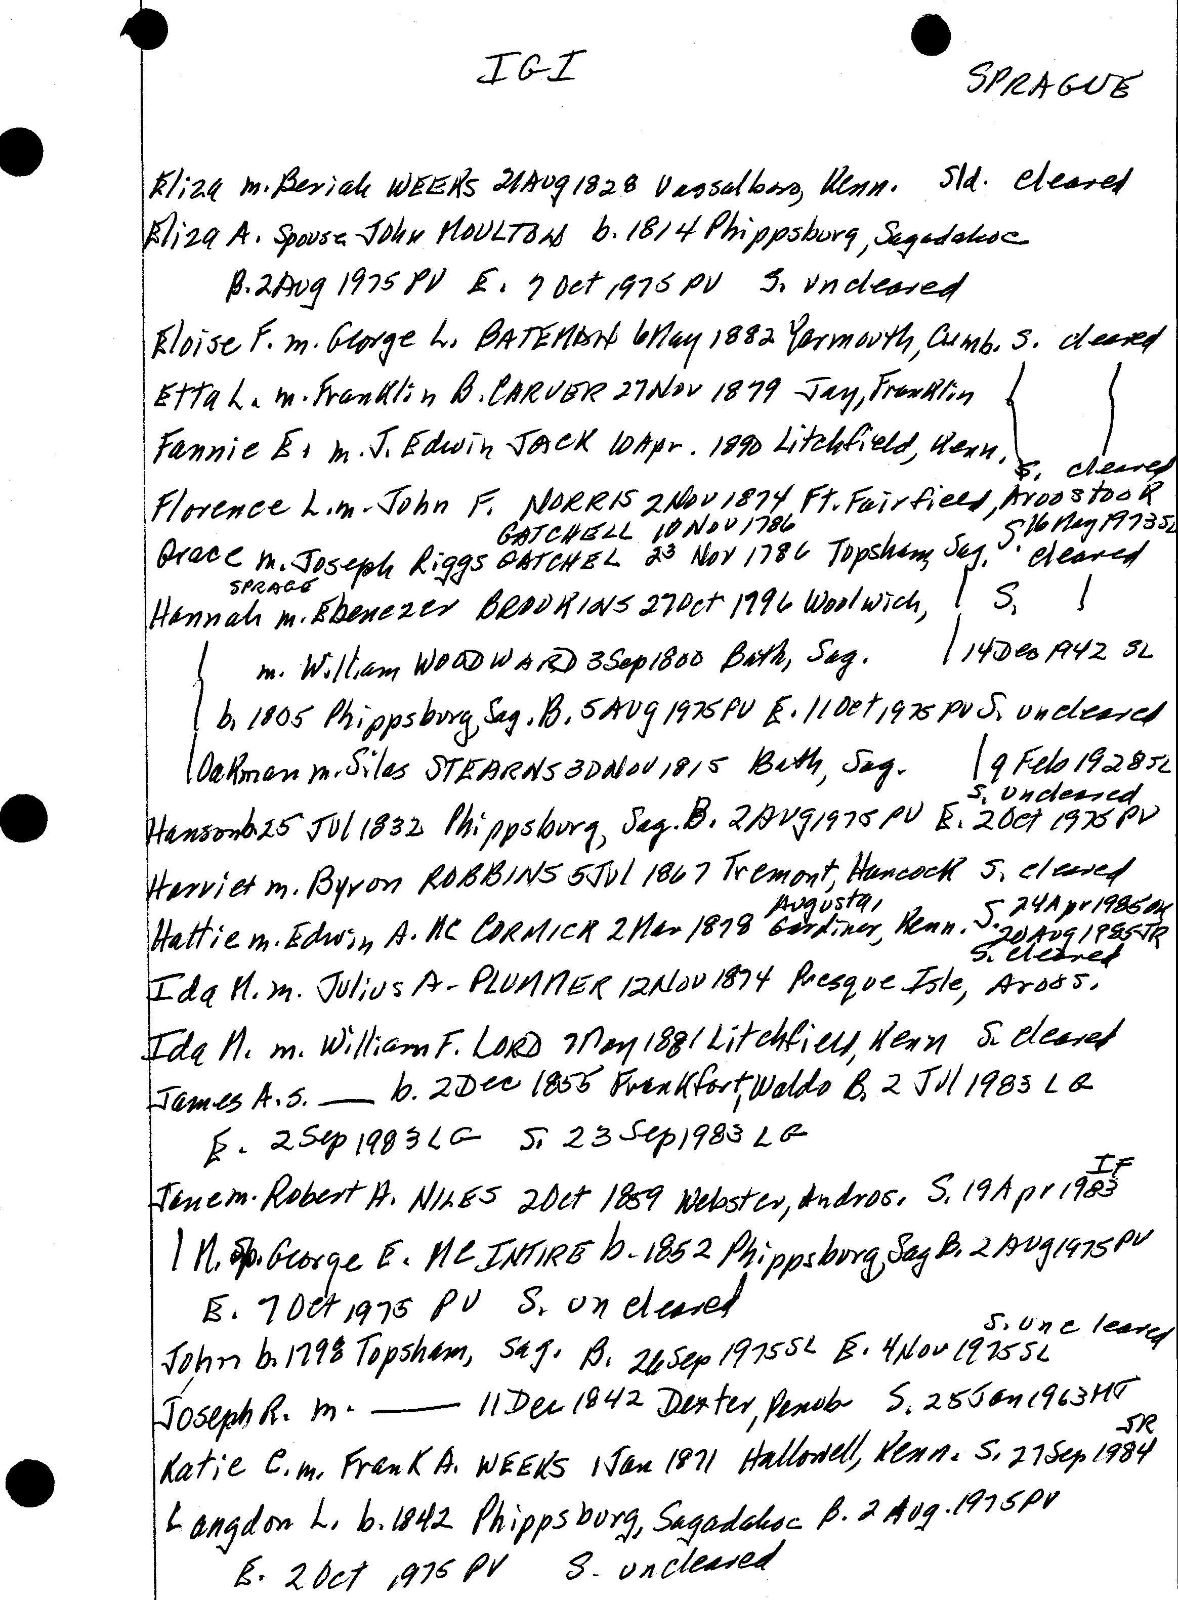 IGI
SPRAGUE
Eliza m. Beriah WEEKS 21 Aug 1828 Vassalboro, Kenn. Sld. cleared
Eliza A. Spouse John MOULTON b. 1814 Phippsburg, Sagadahoc
B. 2 Aug 1975 PV E. 7 Oct 1975 PV S. uncleared
Eloise F. m. George L. BATEMAN 6 May 1882 Yarmouth, Cumb. S. cleared
Etta L. m. Franklin B. CARVER 27 Nov 1879 Jay, Franklin
Fannie E. m. J. Edwin JACK 10 Apr. 1890 Litchfield, Kenn.
S. cleared
Florence L. m. John F. NORRIS 2 Nov 1874 Ft. Fairfield, Aroostook
GATCHELL 10 Nov 1786 S. 16 May 1973 SL
Grace m. Joseph Riggs GATCHEL 23 Nov 1786 Topsham, Sag. cleared
SPRAGE
Hannah m. Ebenezer BROOKINS 27 Oct 1796 Woolwich, S.
m. William WOODWARD 3 Sep 1800 Bath, Sag. 14 Dec 1942 SL
b. 1805 Phippsburg, Sag. B. 5 Aug 1975 PV E. 11 Oct 1975 PV S. uncleared
Oakman m. Silas STEARNS 30 Nov 1815 Bath, Sag. 9 Feb 1928 SL
S. uncleared
Hanson b. 25 Jul 1832 Phippsburg, Sag. B. 2 Aug 1975 PV E. 2 Oct 1975 PV
Harriet m. Byron ROBBINS 5 Jul 1867 Tremont, Hancock S. cleared
Augusta, S. 24 Apr 1985
Hattie m. Edwin A. MC CORMICK 2 Mar 1878 Gardiner, Kenn. 20 Aug 1985 JR
S. cleared
Ida M. m. Julius A. PLUMMER 12 Nov 1874 Presque Isle, Aroos.
Ida M. m. William F. LORD 7 May 1881 Litchfield, Kenn S. cleared
James A. S. — b. 2 Dec 1855 Frankfort, Waldo B. 2 Jul 1983 LG
E. 2 Sep 1983 LG S. 23 Sep 1983 LG
IF
Jane m. Robert A. NILES 2 Oct 1859 Webster, Andros. S. 19 Apr 1983
M. Sp. George E. MC INTIRE b. 1852 Phippsburg, Sag B. 2 Aug 1975 PV
E. 7 Oct 1975 PV S. uncleared
S. uncleared
John b. 1798 Topsham, Sag. B. 26 Sep 1975 SL E. 4 Nov 1975 SL
Joseph R. m. — 11 Dec 1842 Dexter, Penob S. 25 Jan 1963 MT
JR
Katie C. m. Frank A. WEEKS 1 Jan 1871 Hallowell, Kenn. S. 27 Sep 1984
Langdon L. b. 1842 Phippsburg, Sagadahoc B. 2 Aug. 1975 PV
E. 2 Oct 1975 PV S. uncleared